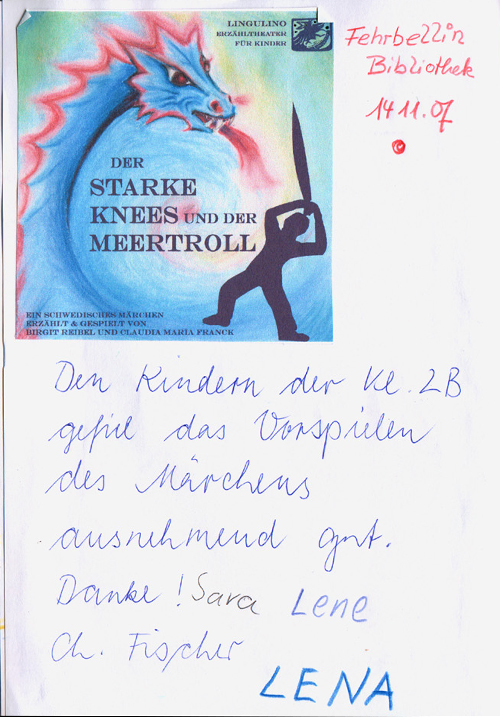 LINGULINO
ERZÄHLTHEATER
FÜR KINDER
Fehrbellin
Bibliothek
14 11. 07
DER
STARKE
KNEES UND DER
MEERTROLL
EIN SCHWEDISCHES MÄRCHEN
ERZÄHLT & GESPIELT VON
BIRGIT REIBEL UND CLAUDIA MARIA FRANCK
Den Kindern der Kl. 2B
gefiel das Vorspielen
des Märchens
ausnehmend gut.
Danke! Sara Lene
Ch. Fischer
LENA